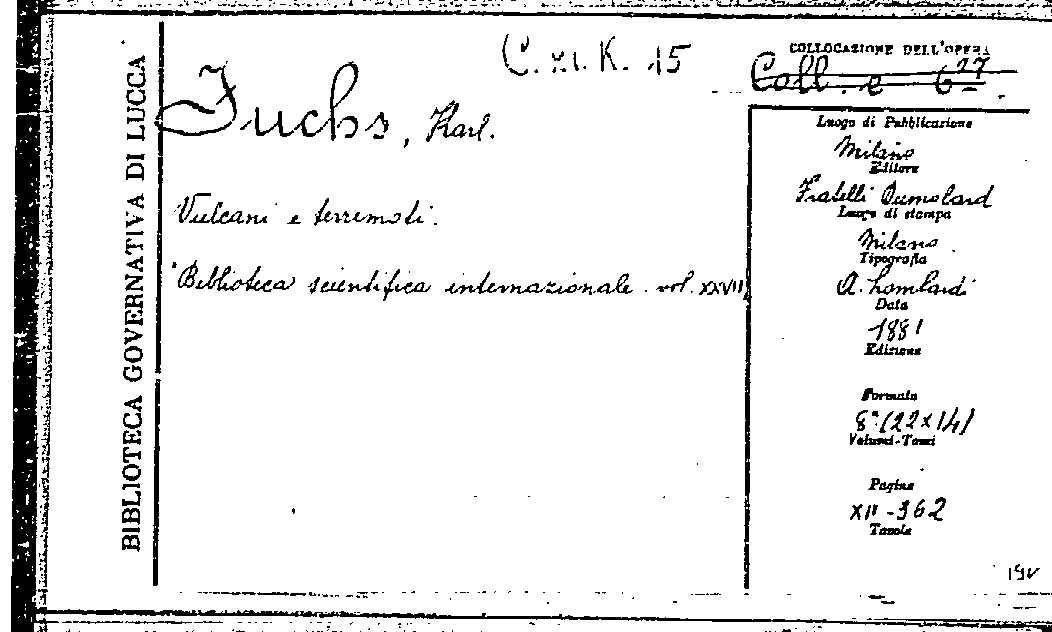 BIBLIOTECA GOVERNATIVA DI LUCCA
C. XI. K. 15
COLLOCAZIONE DELL'OPERA
Coll. e 627
Fuchs, Karl.
Vulcani e terremoti.
Biblioteca scientifica internazionale. vol. XXVII
Luogo di Pubblicazione
Milano
Editore
Fratelli Dumolard
Luogo di stampa
Milano
Tipografia
A. Lombardi
Data
1881
Edizione
Formato
8° (22x14)
Volumi-Tomi
Pagine
XII-362
Tavole